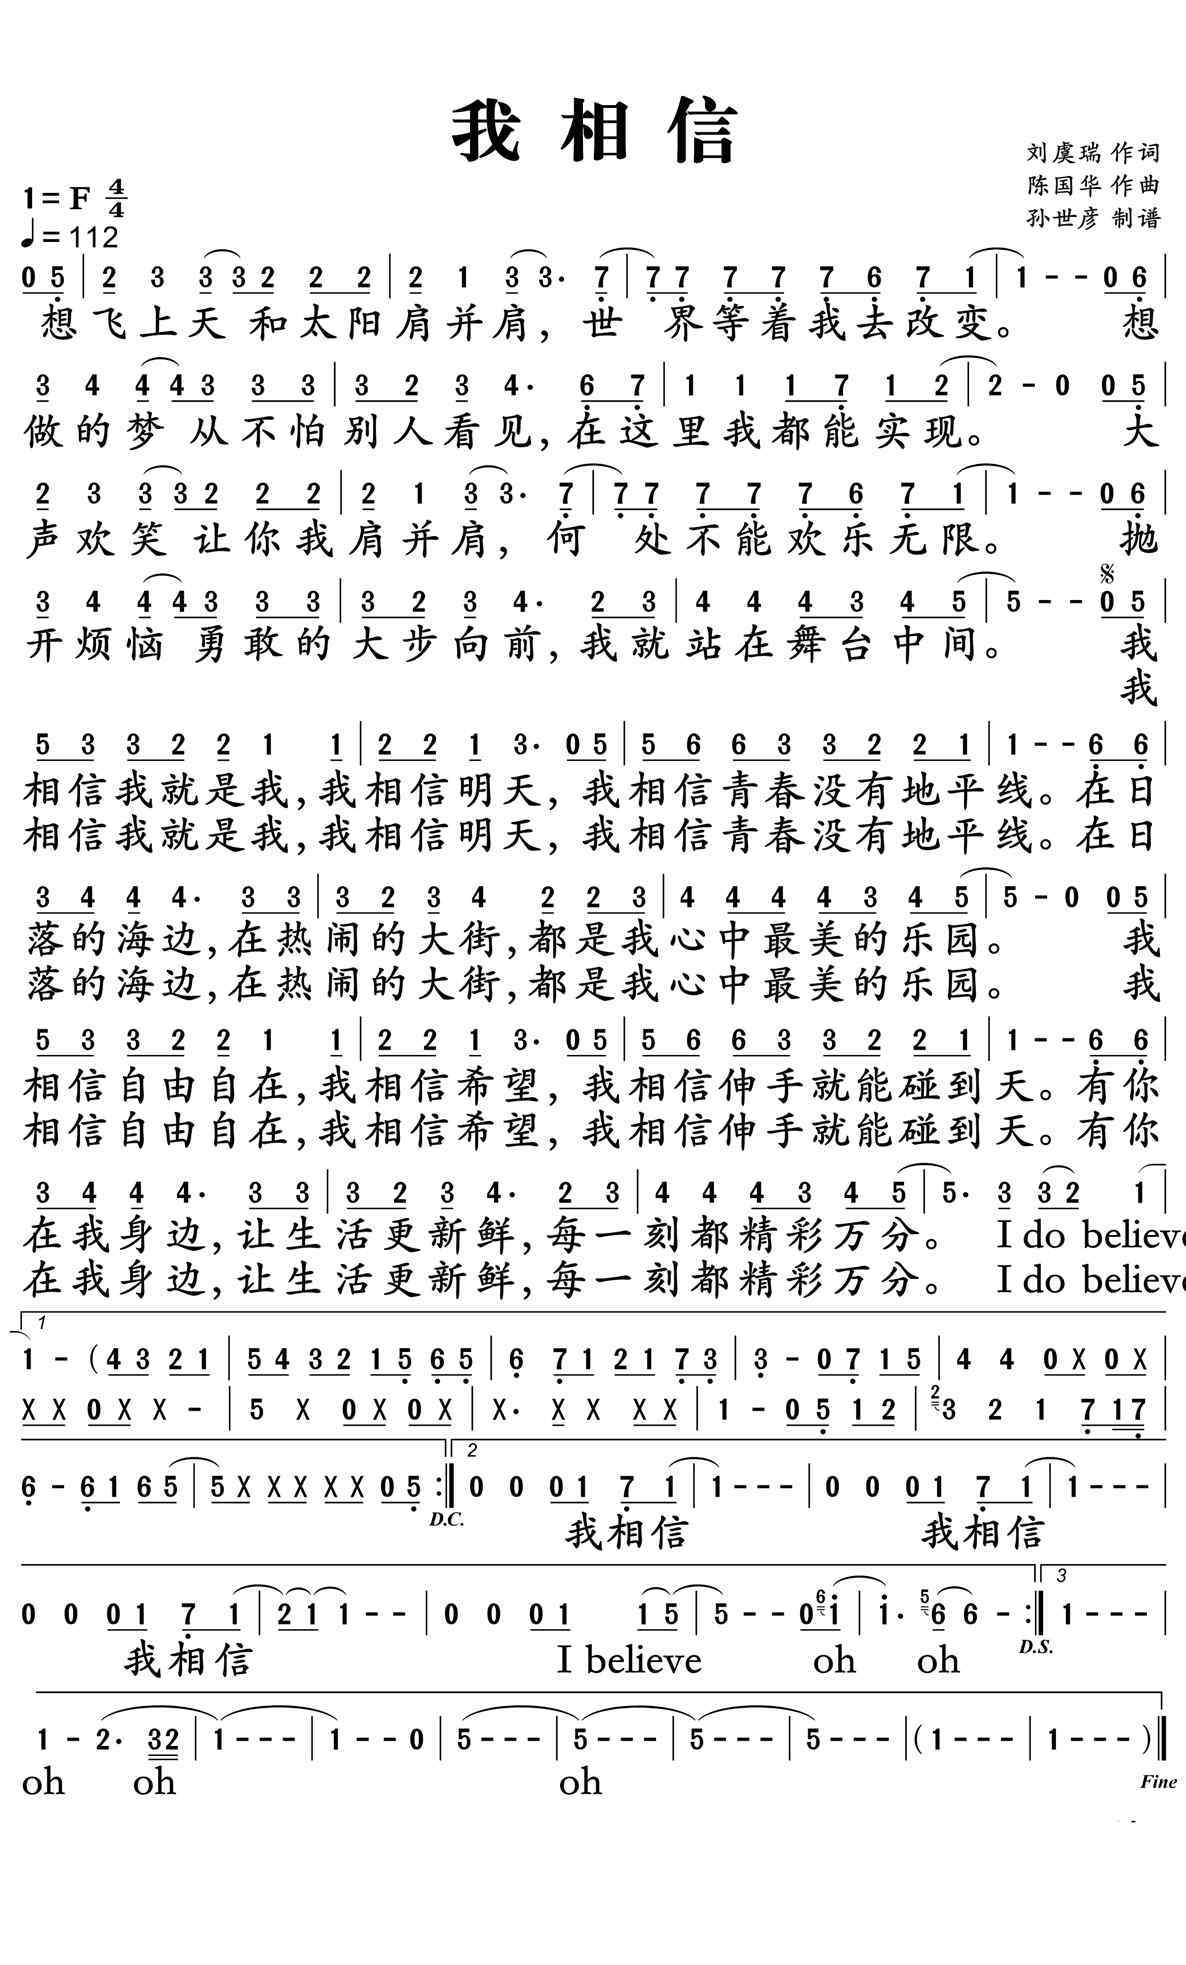 我相信
刘虞瑞 作词
陈国华 作曲
孙世彦 制谱
1= F 4/4
♩= 112
0 5 | 2 3 3 3 2 2 2 | 2 1 3 3· 7 | 7 7 7 7 7 6 7 1 | 1 - - 0 6 |
想飞上天 和太阳肩并肩, 世 界等着我去改变。 想
3 4 4 4 3 3 3 | 3 2 3 4· 6 7 | 1 1 1 7 1 2 | 2 - 0 0 5 |
做的梦 从不怕别人看见,在这里我都能实现。 大
2 3 3 3 2 2 2 | 2 1 3 3· 7 | 7 7 7 7 7 6 7 1 | 1 - - 0 6 |
声欢笑 让你我肩并肩, 何 处不能欢乐无限。 抛
3 4 4 4 3 3 3 | 3 2 3 4· 2 3 | 4 4 4 3 4 5 | 5 - - 0 5 |
开烦恼 勇敢的大步向前,我就站在舞台中间。 我
我
5 3 3 2 2 1 1 | 2 2 1 3· 0 5 | 5 6 6 3 3 2 2 1 | 1 - - 6 6 |
相信我就是我,我相信明天, 我相信青春没有地平线。在日
相信我就是我,我相信明天, 我相信青春没有地平线。在日
3 4 4 4· 3 3 | 3 2 3 4 2 2 3 | 4 4 4 4 3 4 5 | 5 - 0 0 5 |
落的海边,在热闹的大街,都是我心中最美的乐园。 我
落的海边,在热闹的大街,都是我心中最美的乐园。 我
5 3 3 2 2 1 1 | 2 2 1 3· 0 5 | 5 6 6 3 3 2 2 1 | 1 - - 6 6 |
相信自由自在,我相信希望, 我相信伸手就能碰到天。有你
相信自由自在,我相信希望, 我相信伸手就能碰到天。有你
3 4 4 4· 3 3 | 3 2 3 4· 2 3 | 4 4 4 3 4 5 | 5· 3 3 2 1 |
在我身边,让生活更新鲜,每一刻都精彩万分。 I do believe
在我身边,让生活更新鲜,每一刻都精彩万分。 I do believe
1
1 - (4 3 2 1 | 5 4 3 2 1 5 6 5 | 6 7 1 2 1 7 3 | 3 - 0 7 1 5 | 4 4 0 X 0 X |
X X 0 X X - | 5 X 0 X 0 X | X· X X X X | 1 - 0 5 1 2 | 2 3 2 1 7 1 7 |
2
6 - 6 1 6 5 | 5 X X X X X 0 5 :| 0 0 0 1 7 1 | 1 - - - | 0 0 0 1 7 1 | 1 - - - |
D.C.
我相信 我相信
3
0 0 0 1 7 1 | 2 1 1 - - | 0 0 0 1 1 5 | 5 - - 0 6 1 | 1· 5 6 6 - :| 1 - - - |
D.S.
我相信 I believe oh oh
1 - 2· 3 2 | 1 - - - | 1 - - 0 | 5 - - - | 5 - - - | 5 - - - | 5 - - - | (1 - - - | 1 - - - )|
oh oh oh
Fine